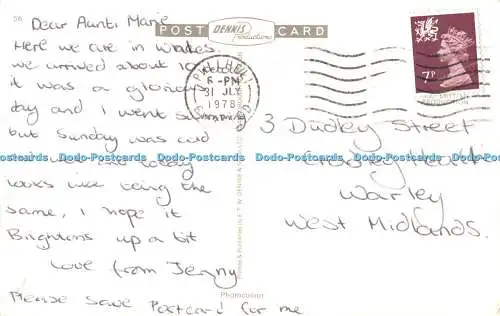 56
Dear Aunti Marie
Here we are in Wales
we arrived about 10
it was a glorious
day and I went
but Sunday was
today
looks like being the
same, I hope it
Brightens up a bit
Love from Jenny
Please save Postcard for me
POST DENNIS Productions CARD
PWLLHELI
6 - PM
31 JLY
1978
7P
3 Dudley Street
Warley
West Midlands.
Photocolor
Dodo-Postcards Dodo-Postcards Dodo-Postcards Dodo-Postcards Dodo-Postcards Dodo-Postcards